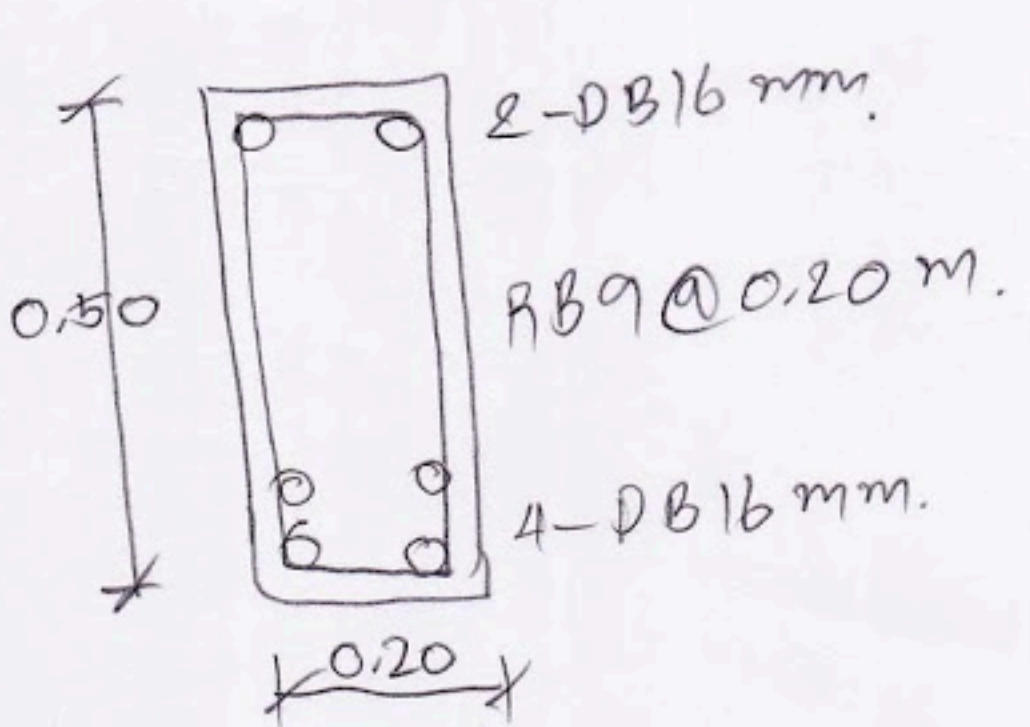 2-DB16 mm.
0.50
RB9@0.20 m.
4-DB16 mm.
0.20